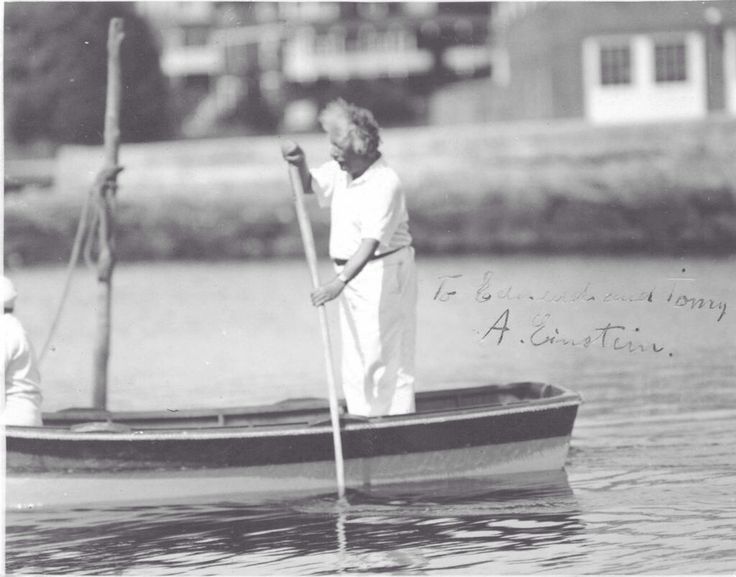 To Edmund and Tomy
A. Einstein.